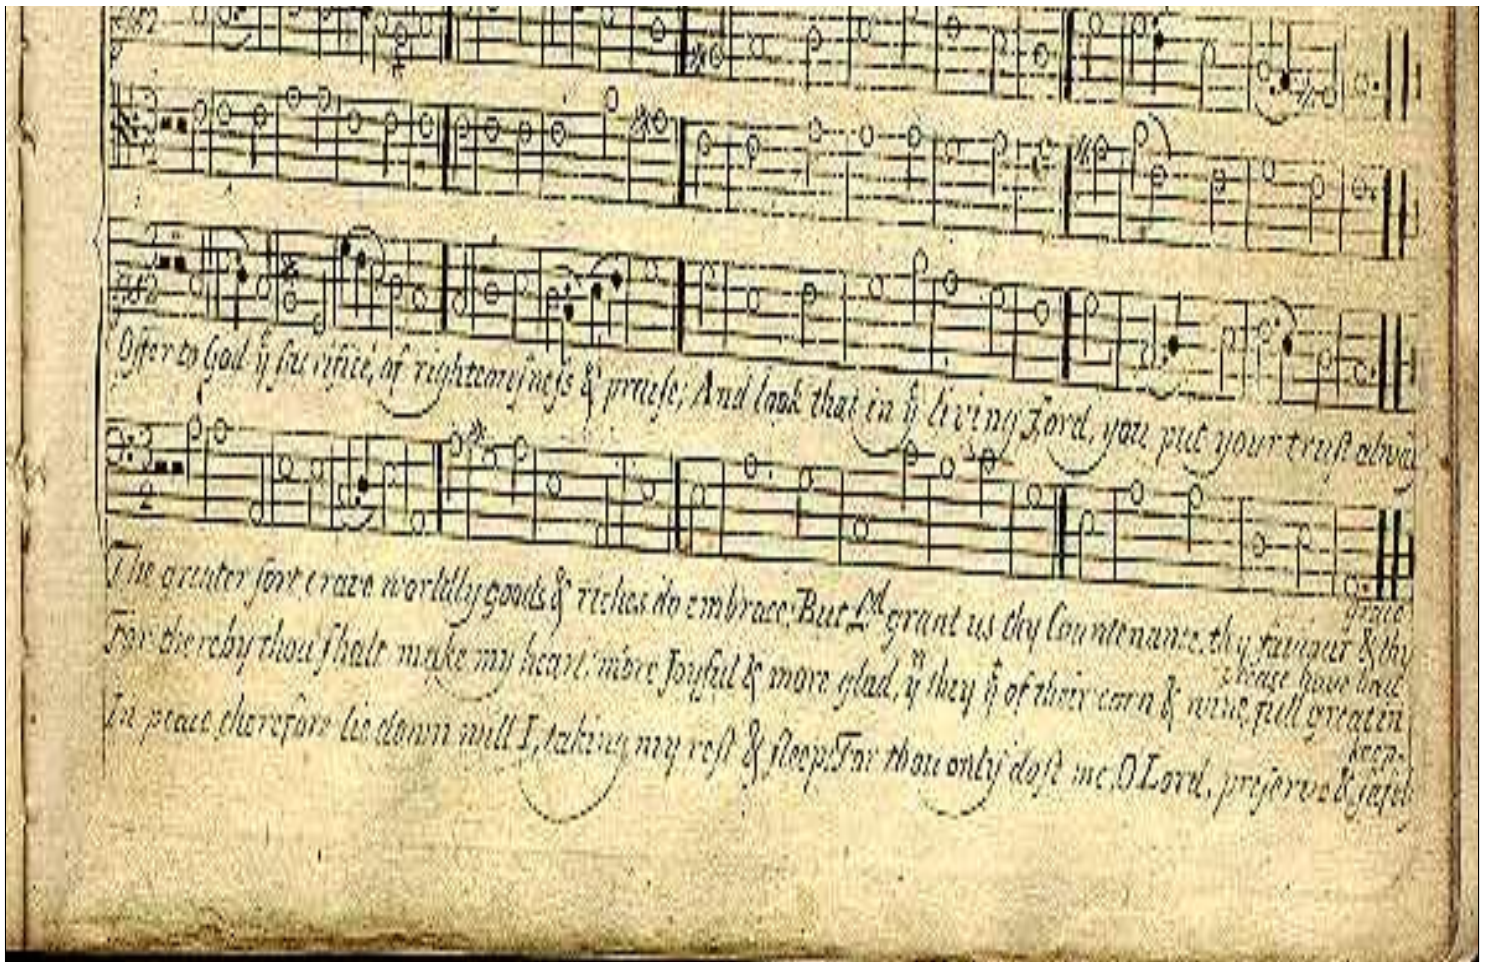 Offer to God yͤ sacrifice, of righteousneſs & praiſe; And look that in yͤ living Lord, you put your truſt alwai
The greater sort crave worldly goods & riches do embrace; But Lᵈ grant us thy Countenance, thy favour & thy
grace
For thereby thou ſhalt make my heart: more Joyful & more glad, yⁿ they yᵗ of their corn & wine, full great in
have had
In peace therefore lie down will I, taking my reſt & ſleep; For thou only doſt me, O Lord, preſerve & ſafely
keep.